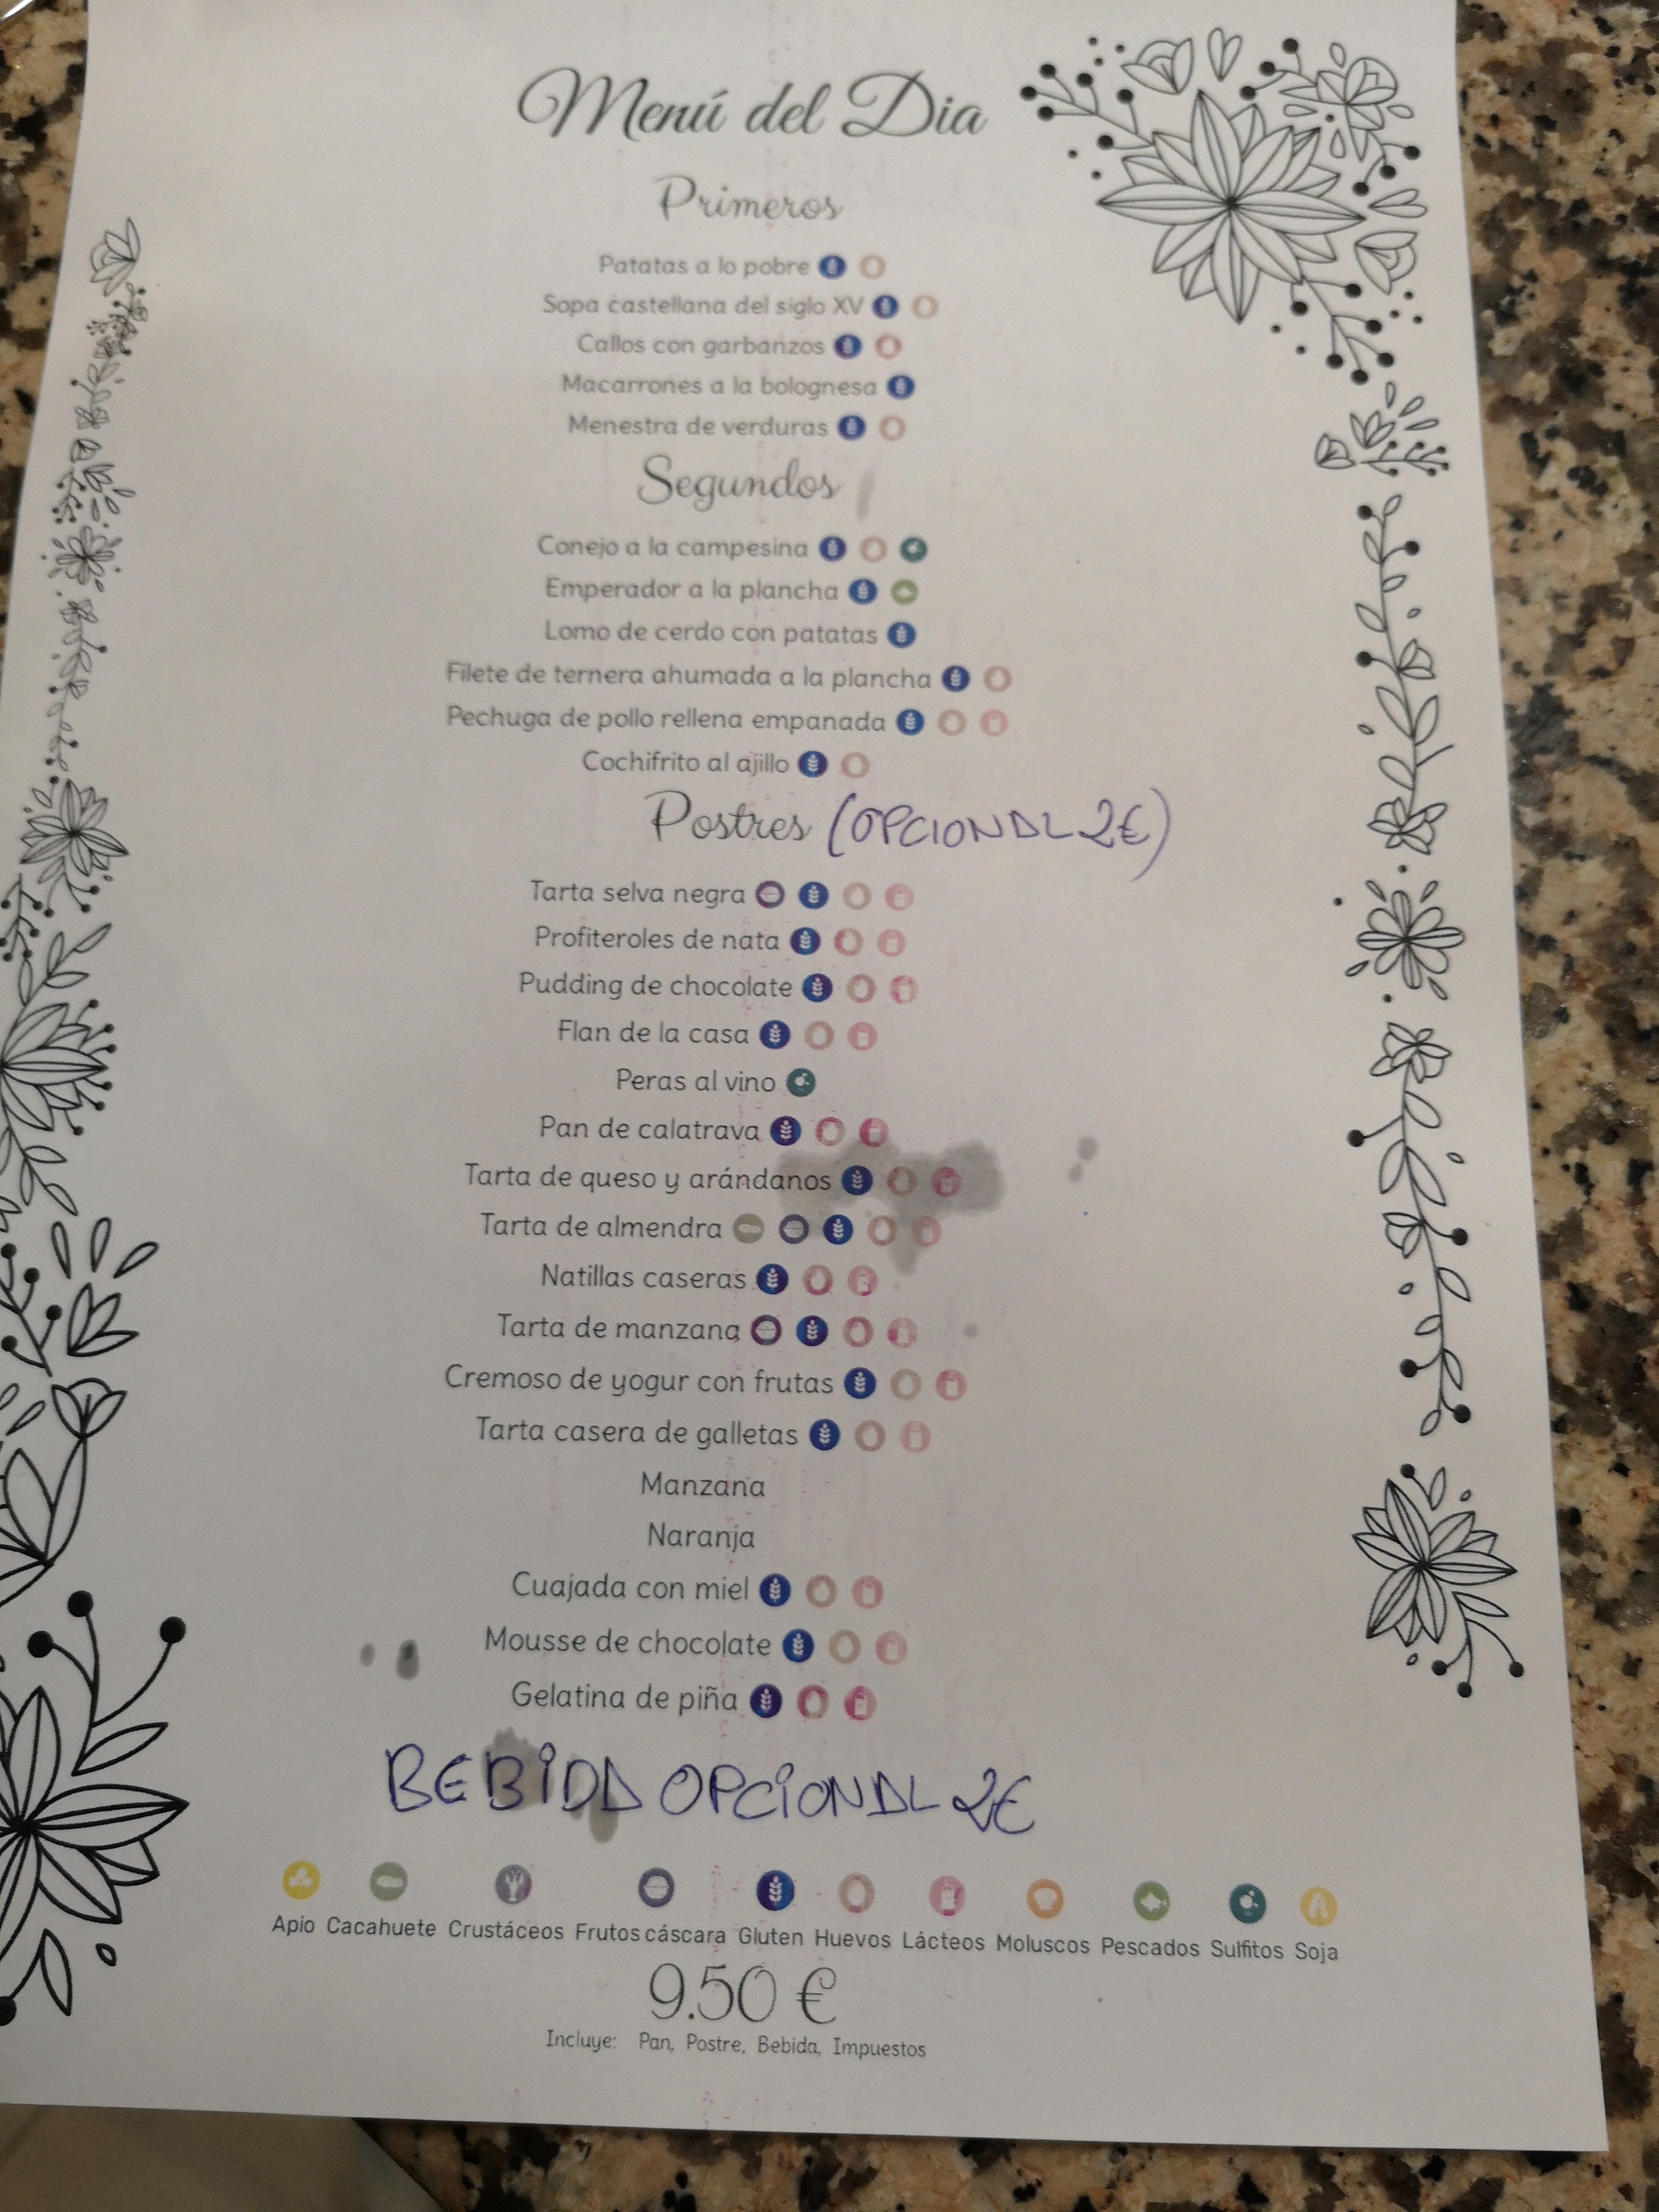 Menú del Dia
Primeros
Patatas a lo pobre
Sopa castellana del siglo XV
Callos con garbanzos
Macarrones a la bolognesa
Menestra de verduras
Segundos
Conejo a la campesina
Emperador a la plancha
Lomo de cerdo con patatas
Filete de ternera ahumada a la plancha
Pechuga de pollo rellena empanada
Cochifrito al ajillo
Postres (OPCIONAL 2€)
Tarta selva negra
Profiteroles de nata
Pudding de chocolate
Flan de la casa
Peras al vino
Pan de calatrava
Tarta de queso y arándanos
Tarta de almendra
Natillas caseras
Tarta de manzana
Cremoso de yogur con frutas
Tarta casera de galletas
Manzana
Naranja
Cuajada con miel
Mousse de chocolate
Gelatina de piña
BEBIDA OPCIONAL 2€
Apio Cacahuete Crustáceos Frutos cáscara Gluten Huevos Lácteos Moluscos Pescados Sulfitos Soja
9.50 €
Incluye: Pan, Postre, Bebida, Impuestos